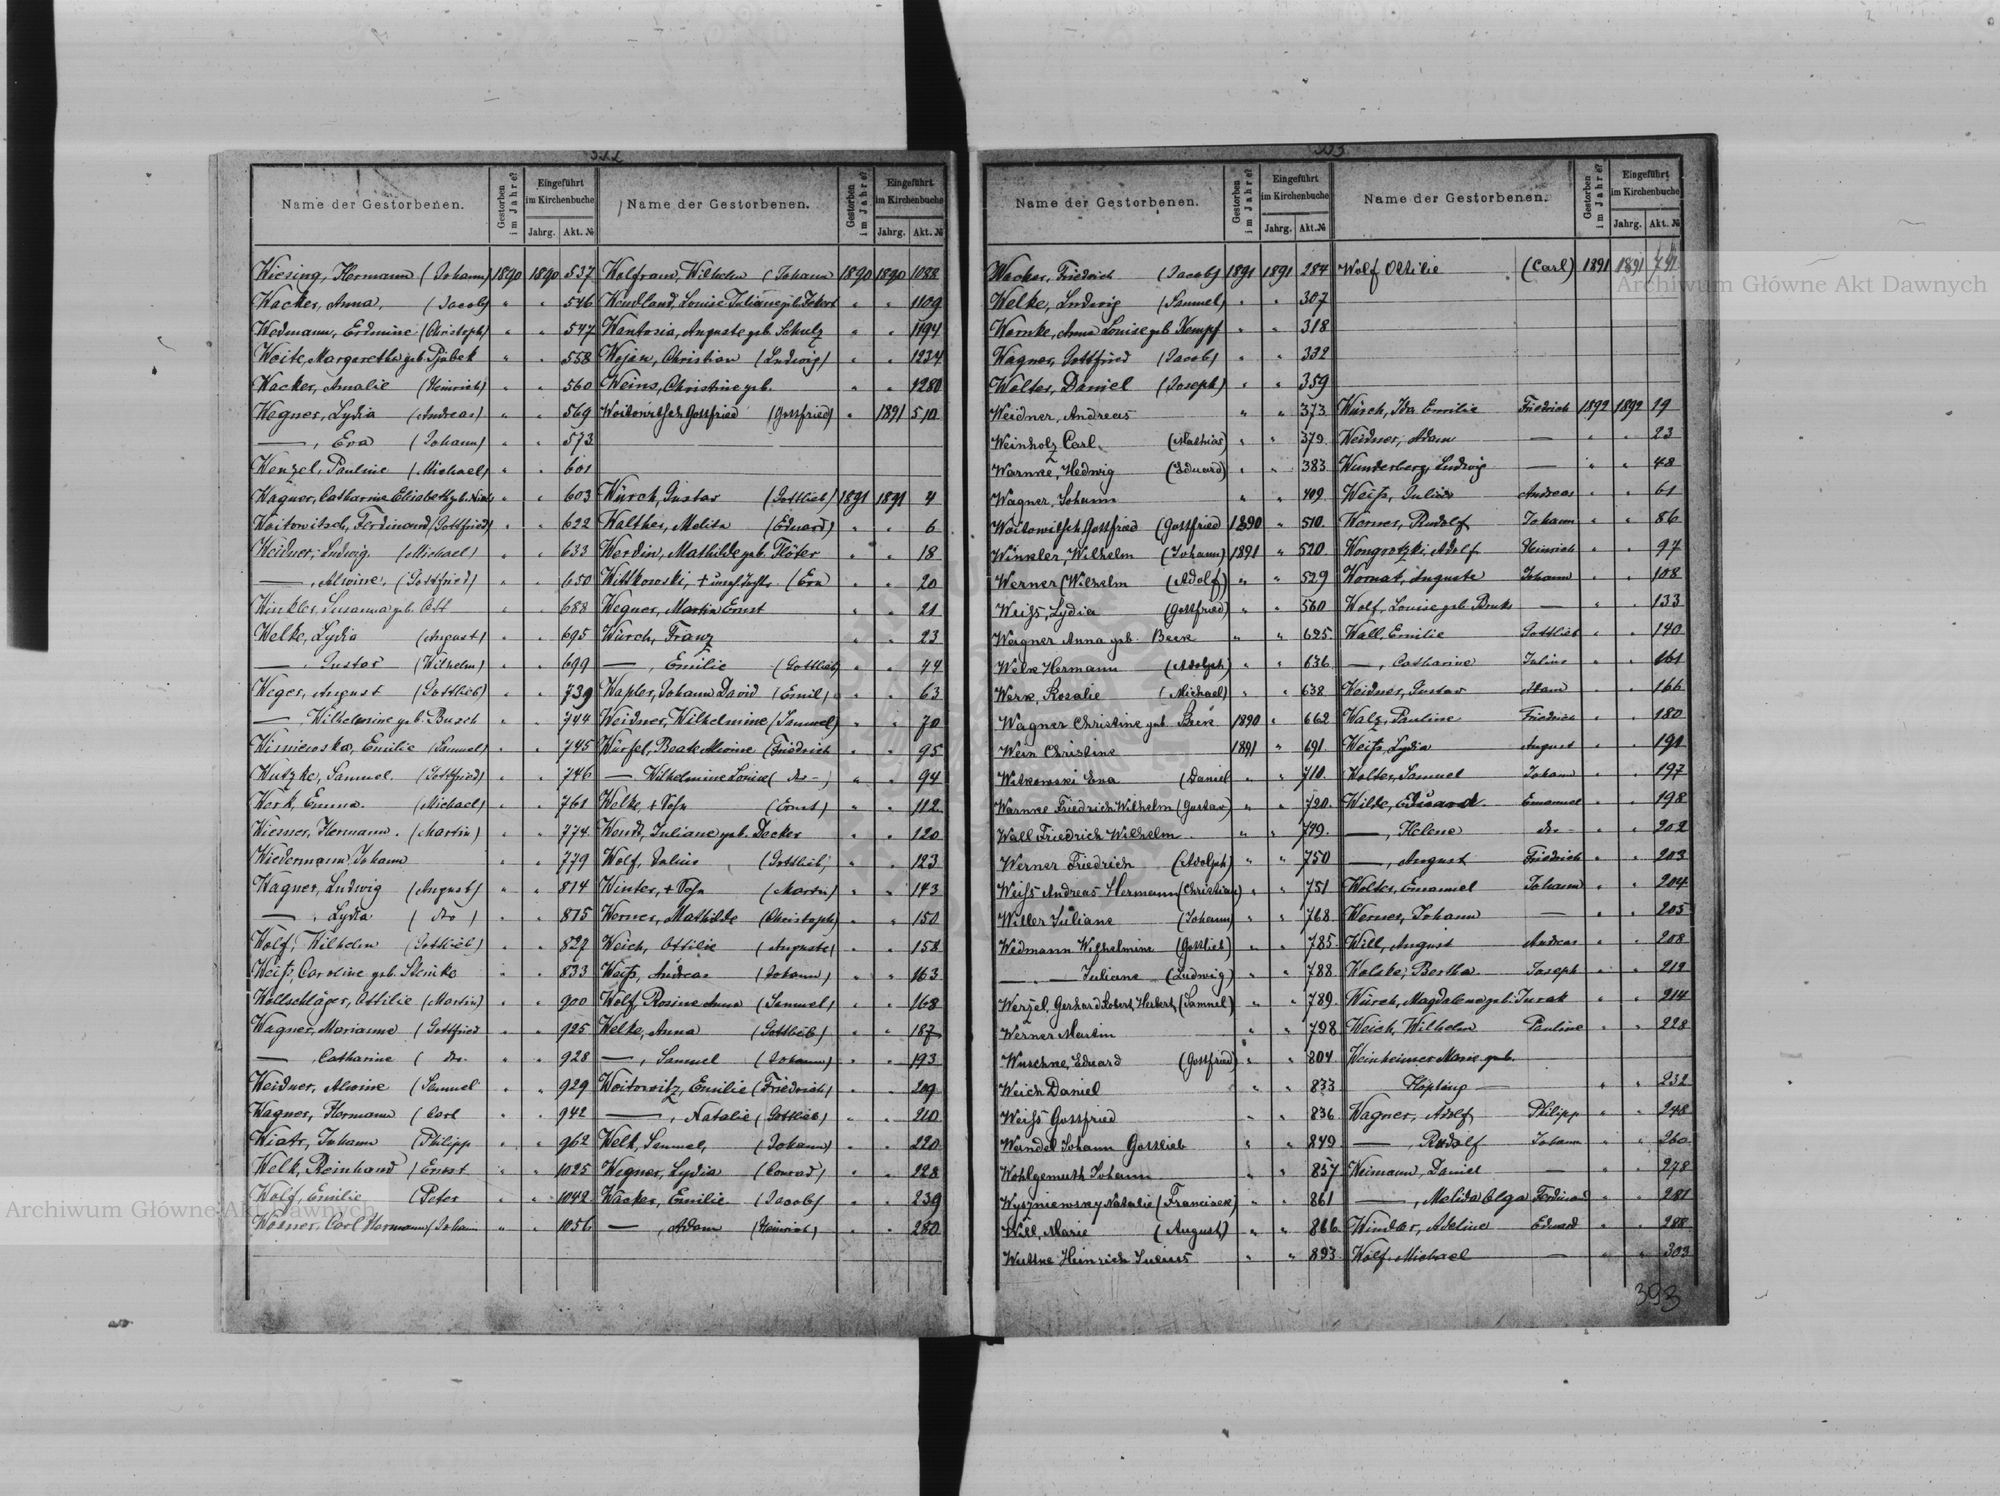 392
Name der Gestorbenen.
Gestorben im Jahre?
Eingeführt im Kirchenbuche
Jahrg.
Akt. №
Wiesing, Hermann (Johann) 1890 1890 537
Wacker, Anna, (Jacob) " " 546
Wedmann, Erdmine (Christoph) " " 547
Woite, Margaretha geb. " " 558
Wacker, Amalie (Heinrich) " " 560
Wegner, Lydia (Andreas) " " 569
—, Eva (Johann) " " 573
Wenzel, Pauline (Michael) " " 601
Wagner, Catharine Elisabeth geb. " " 603
Woitowitsch, Ferdinand (Gottfried) " " 622
Weidner, Ludwig (Michael) " " 633
—, Alwine, (Gottfried) " " 650
Winkler, Susanna geb. Ott " " 688
Welke, Lydia (August) " " 695
—, Gustav (Wilhelm) " " 699
Weger, August (Gottlieb) " " 739
—, Wilhelmine geb. Busch " " 744
Wisniewska, Emilie (Samuel) " " 745
Wutzke, Samuel (Gottfried) " " 746
Werk, Emma (Michael) " " 761
Wiesner, Hermann (Martin) " " 774
Wiedermann, Johann " " 779
Wagner, Ludwig (August) " " 814
—, Lydia (do) " " 815
Wolf, Wilhelm (Gottlieb) " " 827
Weiß, Caroline geb. Steinke " " 833
Wollschläger, Ottilie (Martin) " " 900
Wagner, Marianne (Gottfried " " 925
—, Catharine (do. " " 928
Weidner, Alwine (Samuel " " 929
Wagner, Hermann (Carl " " 942
Wiatr, Johann (Philipp " " 962
Welk, Reinhand (Ernst " " 1025
Wolf, Emilie (Peter " " 1042
Werner, Carl Hermann (Johann " " 1056
Name der Gestorbenen.
Gestorben im Jahre?
Eingeführt im Kirchenbuche
Jahrg.
Akt. №
Wolfram, Wilhelm (Johann 1890 1890 1088
Wendland, Louise Juliane geb. " " 1109
Wantosia, Auguste geb. Schulz " " 1194
Wojan, Christian (Ludwig) " " 1234
Weins, Christine geb. " " 1280
Woitowitsch Gottfried (Gottfried) " 1891 510
Würch, Gustav (Gottlieb) 1891 1891 4
Walther, Melita (Eduard) " " 6
Werdin, Mathilde geb. Flöter " " 18
Wittkowski, + (Eva) " " 20
Wegner, Martin Ernst " " 21
Würch, Franz " " 23
—, Emilie (Gottlieb) " " 44
Wapler, Johann David (Emil) " " 63
Weidner, Wilhelmine (Samuel) " " 70
Würfel, Beate Alwine (Friedrich " " 95
— Wilhelmine Louise (do-) " " 94
Welke, + Sohn (Ernst) " " 112
Wendt, Juliane geb. Decker " " 120
Wolf, Julius (Gottlieb) " " 123
Winter, + Sohn (Martin) " " 143
Werner, Mathilde (Christoph) " " 150
Weich, Ottilie (Auguste) " " 151
Weiß, Andreas (Johann) " " 163
Wolf, Rosine Anna (Samuel) " " 168
Welke, Anna (Gottlieb) " " 187
—, Samuel (Johann) " " 193
Woitowitz, Emilie (Friedrich) " " 209
—, Natalie (Gottlieb) " " 210
Welk, Samuel, (Johann) " " 220
Wegner, Lydia (Conrad) " " 228
Wacker, Emilie (Jacob) " " 239
—, Adam (Heinrich) " " 280
393
Name der Gestorbenen.
Gestorben im Jahre?
Eingeführt im Kirchenbuche
Jahrg.
Akt. №
Wacker, Friedrich (Jacob) 1891 1891 284
Welke, Ludwig (Samuel) " " 307
Warnke, Anna Louise geb. Kempf " " 318
Wagner, Gottfried (Jacob) " " 332
Walter, Daniel (Joseph) " " 359
Weidner, Andreas " " 373
Weinholz Carl (Mathias) " " 379
Warnke, Hedwig (Eduard) " " 383
Wagner, Johann " " 409
Woitowitsch Gottfried (Gottfried 1890 " 510.
Winkler, Wilhelm (Johann) 1891 " 520
Werner Wilhelm (Adolf) " " 529
Weiss, Lydia (Gottfried) " " 560
Weigner Anna geb. " " 625
Welk Hermann (Adolph) " " 636
Werk, Rosalie (Michael) " " 638
Wagner Christine geb. 1890 " 662
Wein Christine 1891 " 691
Witkowski Eva (Daniel " " 710.
Warnke Friedrich Wilhelm (Gustav) " " 720.
Wall Friedrich Wilhelm " " 729.
Werner Friedrich (Adolph) " " 750
Weiss Andreas Hermann (Christian) " " 751
Willer Juliane (Johann) " " 768
Wedmann Wilhelmine (Gottlieb) " " 785
— " — Juliane (Ludwig) " " 788
Wenzel Gerhard Robert Herbert (Samuel) " " 789
Werner Martin " " 798
Wuschke, Eduard (Gottfried) " " 804
Weich Daniel " " 833
Weiss Gottfried " " 836
Wendel Johann Gottlieb " " 849
Wohlgemuth Johann " " 857
Wyszniewsky Natalie (Francisek) " " 861
Will, Marie (August) " " 866
Wuttke Heinrich Julius " " 893
Name der Gestorbenen.
Gestorben im Jahre?
Eingeführt im Kirchenbuche
Jahrg.
Akt. №
Wolf Ottilie (Carl) 1891 1891 741
Würch, Ida Emilie Friedrich 1892 1892 19
Weidner, Adam — " " 23
Wunderberg, Ludwig — " " 48
Weiß, Julius Andreas " " 61
Werner, Rudolf Johann " " 86
Wongrotzki, Adolf Heinrich " " 97
Wornat, Auguste Johann " " 108
Wolf, Louise geb. — " " 133
Wall, Emilie Gottlieb " " 140
—, Catharine Julius " " 161
Weidner, Gustav Adam " " 166
Walz, Pauline Friedrich " " 180
Weiß, Lydia August " " 191
Wolter, Samuel Johann " " 197
Wilde, Eduard Emanuel " " 198
—, Helene do- " " 202
—, August Friedrich " " 203
Wolter, Emanuel Johann " " 204
Werner, Johann — " " 205
Will, August Andreas " " 208
Walske, Bertha Joseph " " 212
Würch, Magdalena geb. Jurak " " 214
Weich, Wilhelm Pauline " " 228
Weinheimer Marie geb.
Höpting — " " 232
Wagner, Adolf Philipp " " 248
—, Rudolf Johann " " 260
Weimann, Daniel — " " 278
—, Melida Olga Ferdinand " " 281
Winder, Adeline Eduard " " 288
Wolf, Michael — " " 303
393
Archiwum Główne Akt Dawnych
Archiwum Główne Akt Dawnych